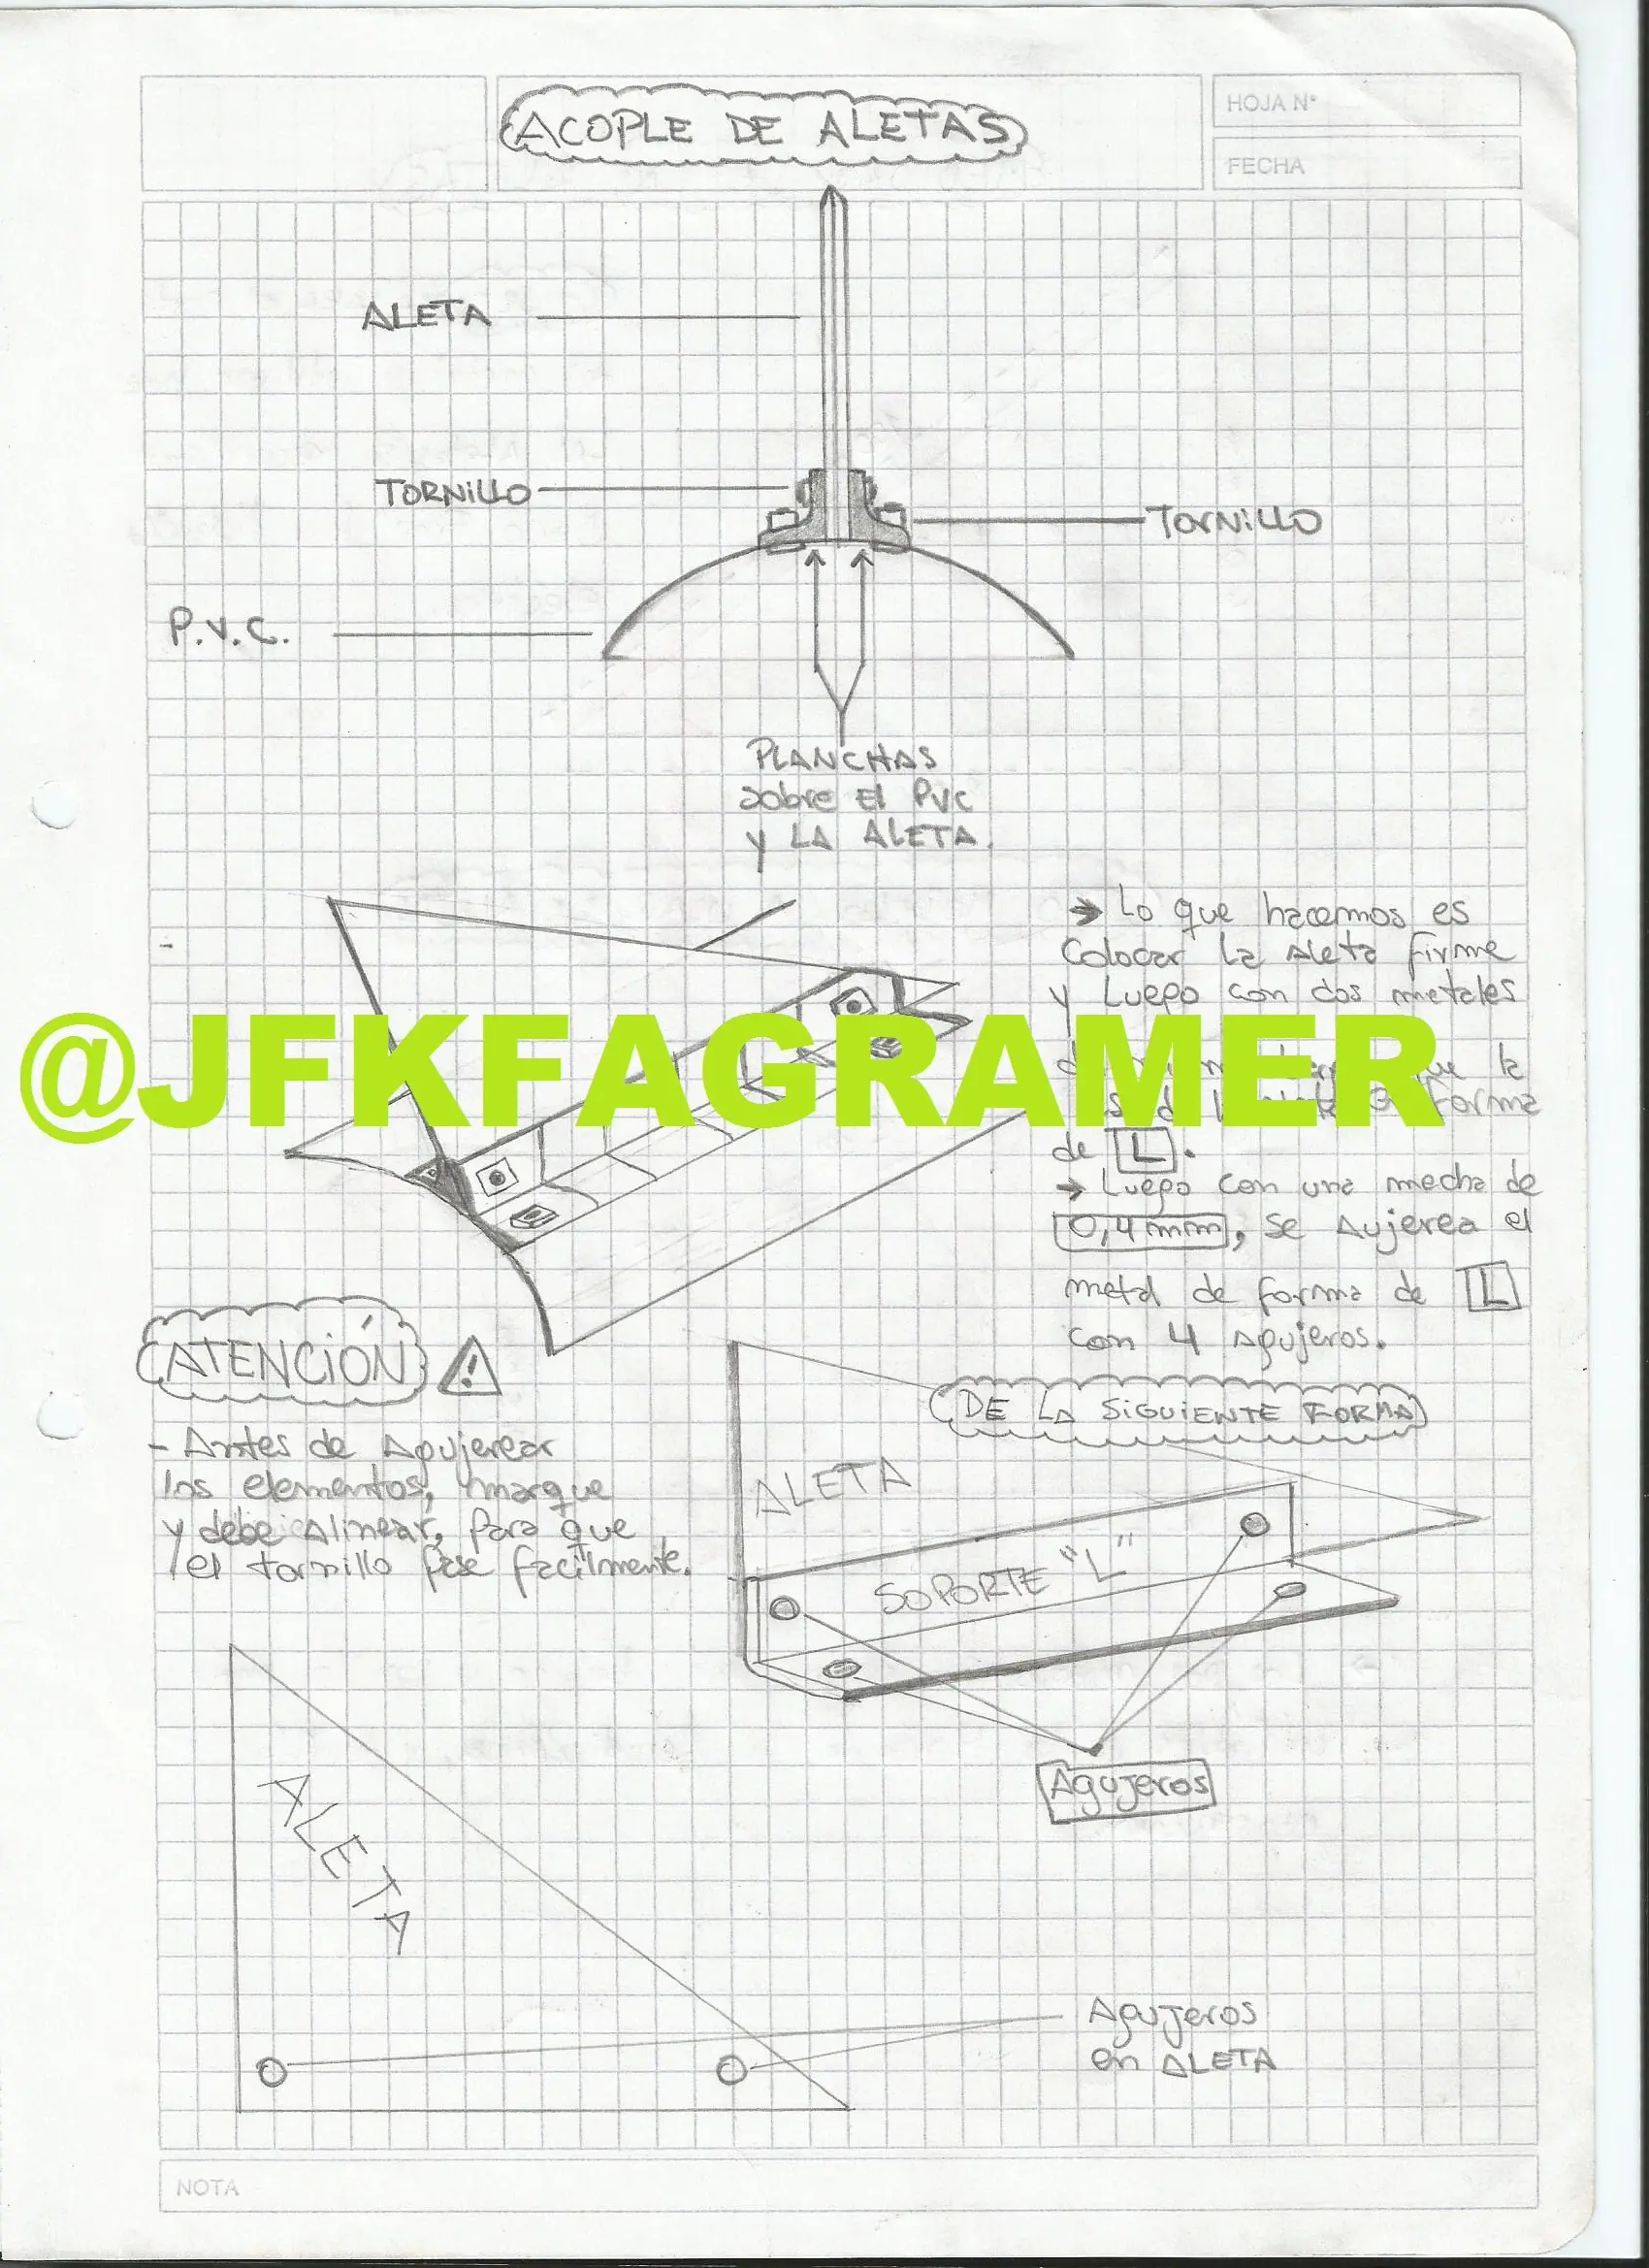 ACOPLE DE ALETAS
HOJA N°
FECHA
ALETA
TORNILLO
TORNILLO
P.V.C.
PLANCHAS
sobre El PVC
y LA ALETA.
→ Lo que hacemos es
Colocar La Aleta firme
y Luego con dos metales
@JFKFAGRAMER
forma
de L.
→ Luego con una mecha de
0,4 mm, se Aujerea el
metal de forma de L
con 4 agujeros.
ATENCIÓN
- Antes de Agujerear
los elementos, marque
y debe Alinear, para que
el tornillo pase facilmente.
DE LA SiGUiENTE FORMA
ALETA
SOPORTE "L"
Agujeros
ALETA
Agujeros
en ALETA
NOTA